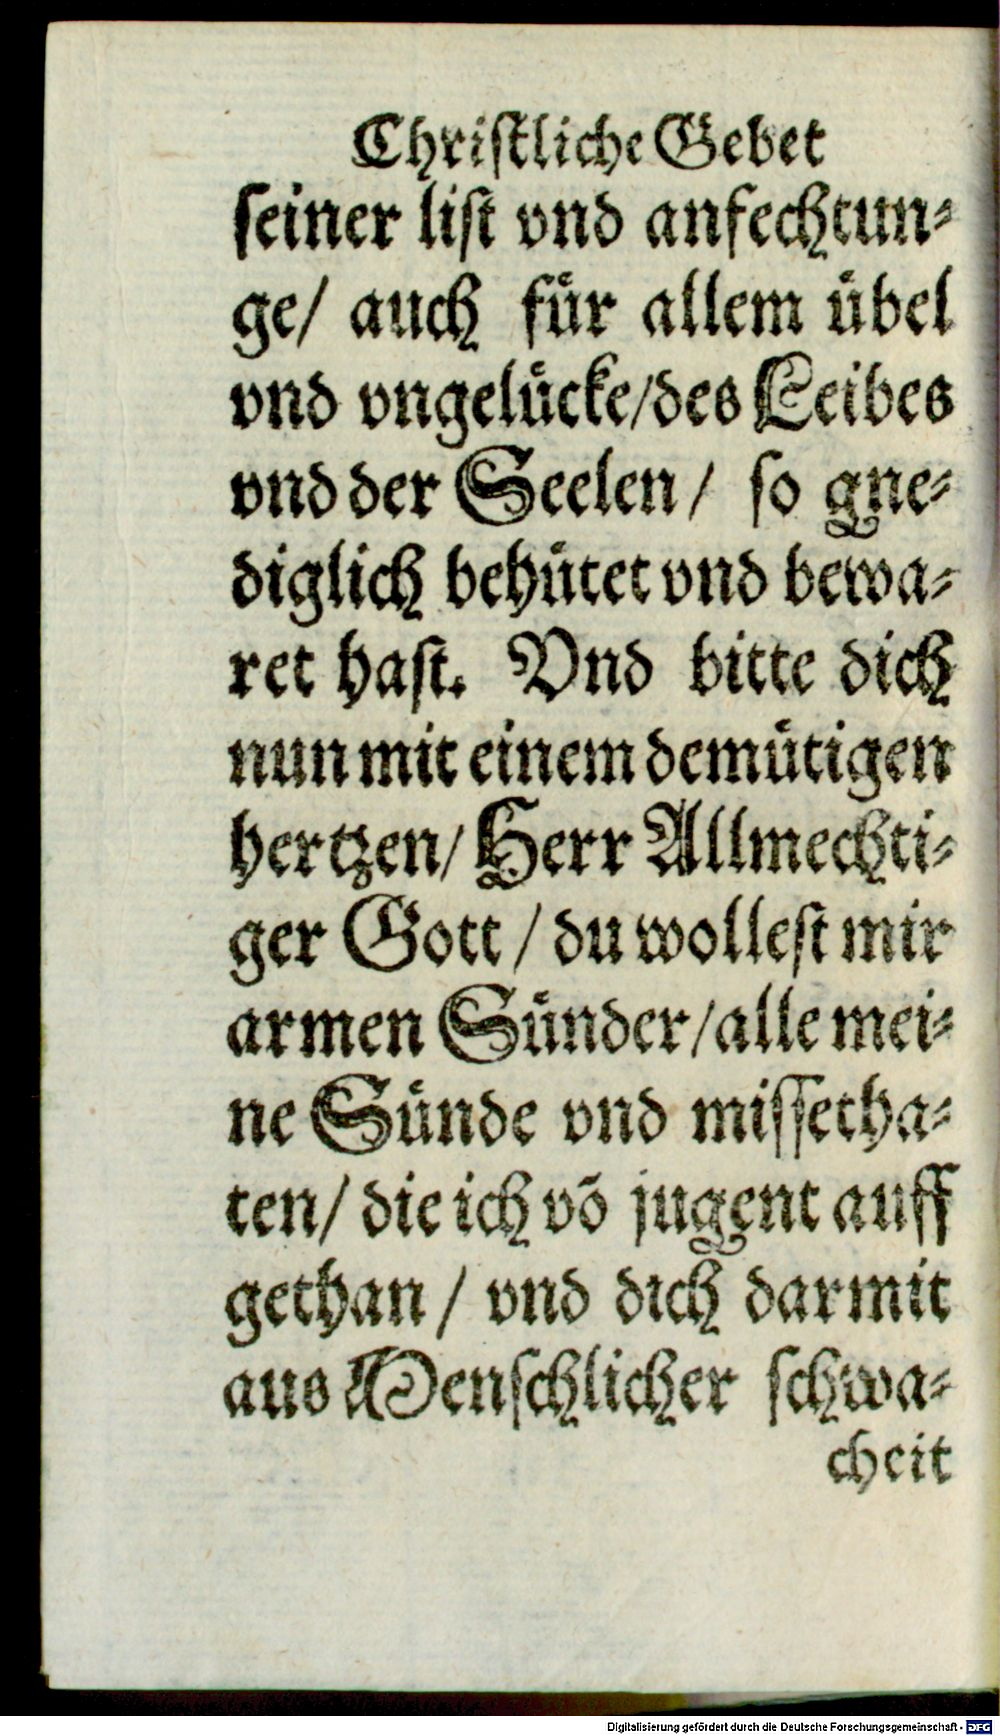 Christliche Gebet
seiner list vnd anfechtun⸗
ge/ auch für allem übel
vnd vngelücke/des Leibes
vnd der Seelen/ so gne⸗
diglich behütet vnd bewa⸗
ret hast. Vnd bitte dich
nun mit einem demütigen
hertzen/ Herr Allmechti⸗
ger Gott/ du wollest mir
armen Sünder/alle mei⸗
ne Sünde vnd missetha⸗
ten/ die ich võ jugent auff
gethan/ vnd dich darmit
aus Menschlicher schwa⸗
cheit
Digitalisierung gefördert durch die Deutsche Forschungsgemeinschaft - DFG